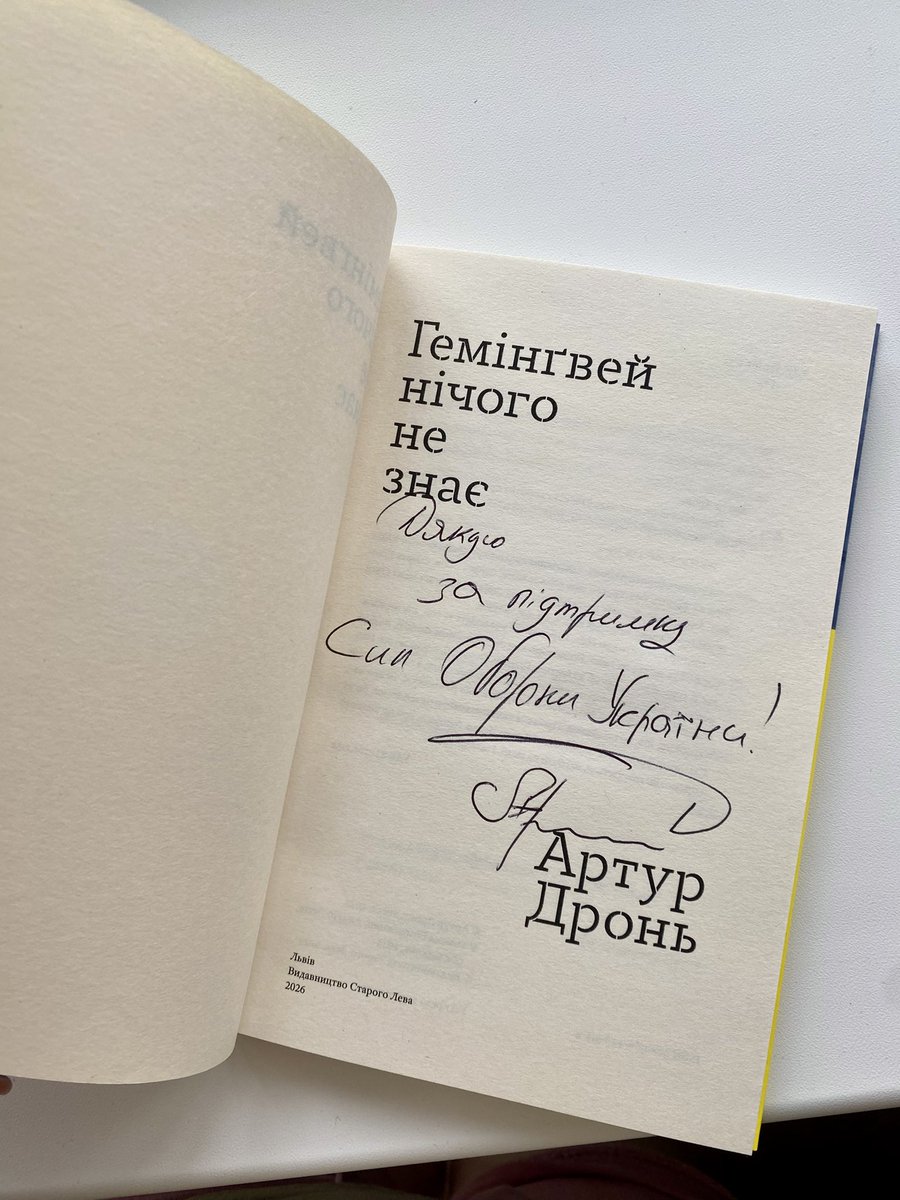 Гемінґвей
нічого
не
знає
Дякую
за підтримку
Сил Оборони України!
Артур
Дронь
Львів
Видавництво Старого Лева
2026